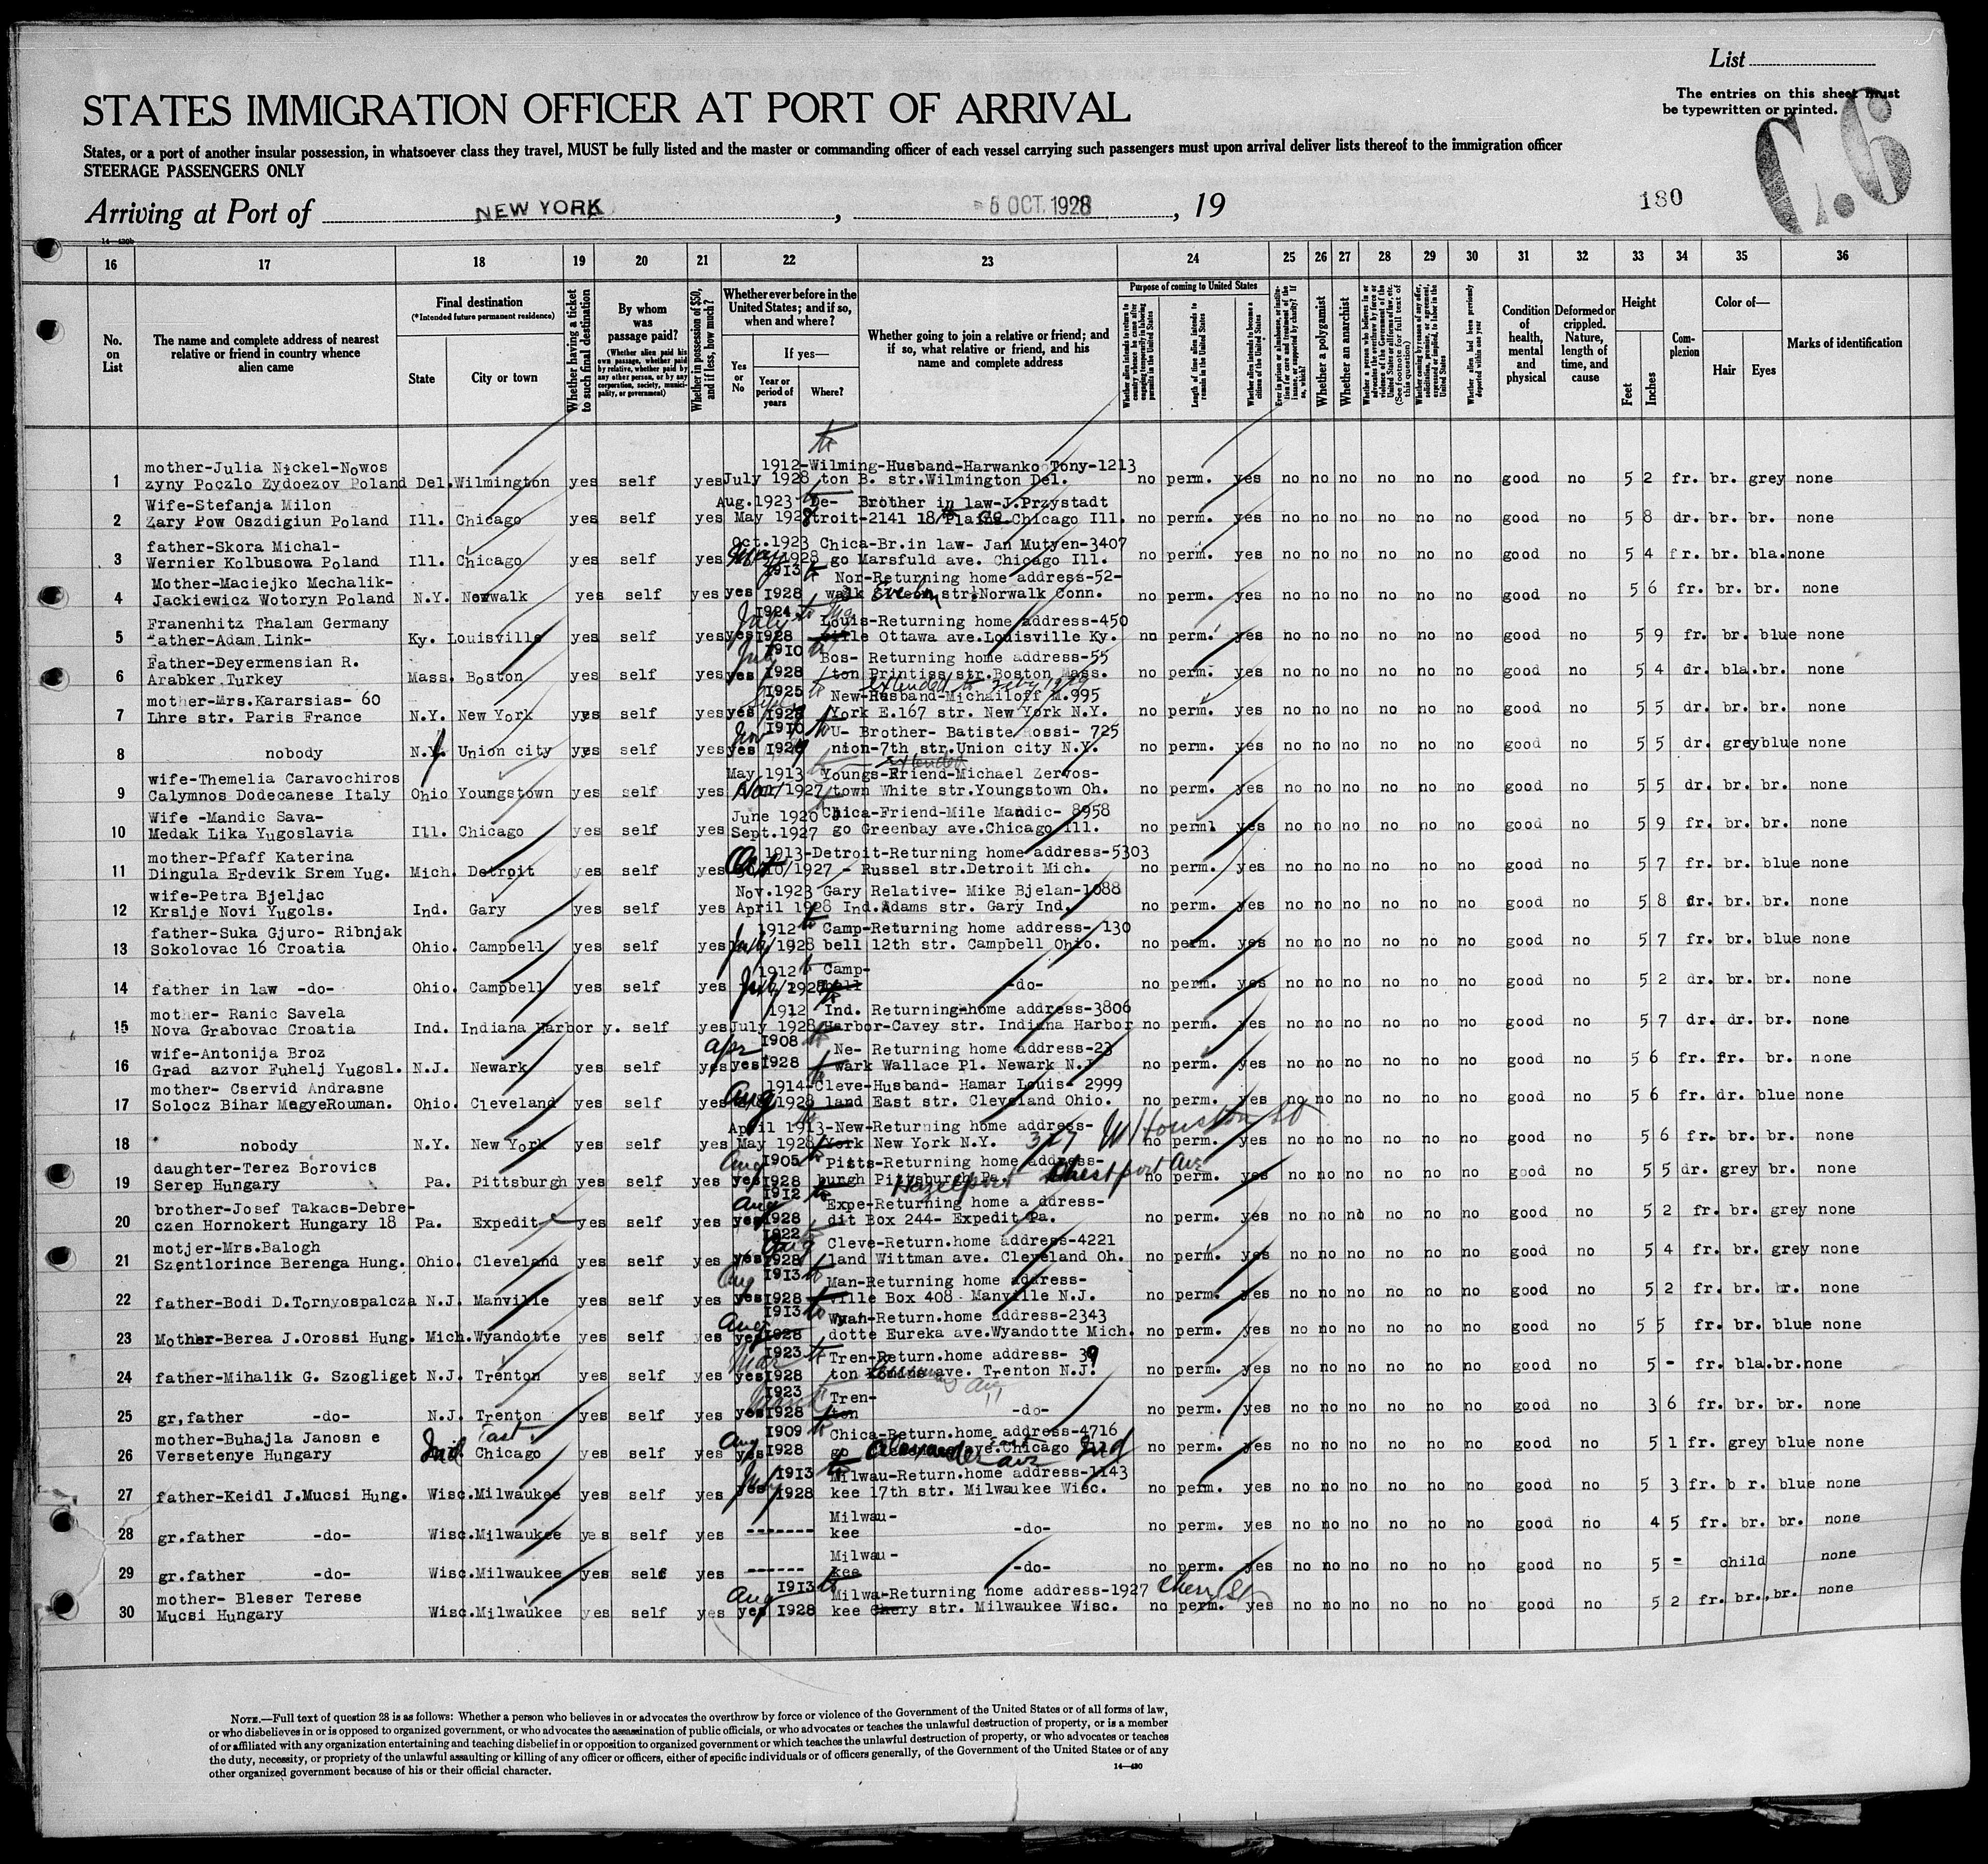 List
The entries on this sheet must
be typewritten or printed.
C.6
STATES IMMIGRATION OFFICER AT PORT OF ARRIVAL
States, or a port of another insular possession, in whatsoever class they travel, MUST be fully listed and the master or commanding officer of each vessel carrying such passengers must upon arrival deliver lists thereof to the immigration officer
STEERAGE PASSENGERS ONLY
Arriving at Port of NEW YORK, OCT. 1928, 19 180
14—430b
16 17 18 19 20 21 22 23 24 25 26 27 28 29 30 31 32 33 34 35 36
No. on List
The name and complete address of nearest relative or friend in country whence alien came
Final destination
(*Intended future permanent residence)
State
City or town
Whether having a ticket to such final destination
By whom was passage paid?
(Whether alien paid his own passage, whether paid by relative, whether paid by any other person, or by any corporation, society, municipality, or government)
Whether in possession of $50, and if less, how much?
Whether ever before in the United States; and if so, when and where?
Yes or No
If yes—
Year or period of years
Where?
Whether going to join a relative or friend; and if so, what relative or friend, and his name and complete address
Purpose of coming to United States
Length of time alien intends to remain in the United States
Whether alien intends to become a citizen of the United States
Whether a polygamist
Whether an anarchist
Condition of health, mental and physical
Deformed or crippled. Nature, length of time, and cause
Height
Feet
Inches
Complexion
Color of—
Hair
Eyes
Marks of identification
1 mother-Julia Nickel-Nowos 1912-Wilming-Husband-Harwanko Tony-1213
zyny Poczlo Zydoezov Poland Del. Wilmington yes self yes July 1928 ton B. str.Wilmington Del. no perm. yes no no no no no no good no 5 2 fr. br. grey none
2 Wife-Stefanja Milon Aug.1923 De- Brother in law-J.Przystadt
Zary Pow Oszdigiun Poland Ill. Chicago yes self yes May 1928 troit-2141 Chicago Ill. no perm. yes no no no no no no good no 5 8 dr. br. br. none
3 father-Skora Michal- Oct.1923 Chica-Br.in law- Jan Mutyen-3407
Wernier Kolbusowa Poland Ill. Chicago yes self yes May 1928 go Marsfuld ave. Chicago Ill. no perm. yes no no no no no no good no 5 4 fr. br. bla. none
4 Mother-Maciejko Mechalik- 1913 Nor-Returning home address-52-
Jackiewicz Wotoryn Poland N.Y. Norwalk yes self yes yes 1928 walk str.Norwalk Conn. no perm. yes no no no no no no good no 5 6 fr. br. br. none
5 Franenhitz Thalam Germany 1924 Louis-Returning home address-450
Father-Adam Link- Ky. Louisville yes self yes yes July 1928 ville Ottawa ave.Louisville Ky. no perm. yes no no no no no no good no 5 9 fr. br. blue none
6 Father-Deyermensian R. 1910 Bos- Returning home address-55
Arabker Turkey Mass. Boston yes self yes yes 1928 ton Printiss str.Boston Mass. no perm. yes no no no no no no good no 5 4 dr. bla. br. none
7 mother-Mrs.Kararsias- 60 1925 New-Husband-Michailoff M.995
Lhre str. Paris France N.Y. New York yes self yes yes 1928 York E.167 str. New York N.Y. no perm. yes no no no no no no good no 5 5 dr. br. br. none
8 1910 U- Brother- Batiste Rossi- 725
nobody N.Y. Union city yes self yes yes Nov nion-7th str.Union city N.Y. no perm. yes no no no no no no good no 5 5 dr. grey blue none
extended
9 wife-Themelia Caravochiros May 1913 Youngs-Friend-Michael Zervos-
Calymnos Dodecanese Italy Ohio Youngstown yes self yes Nov/1927 town White str.Youngstown Oh. no perm. yes no no no no no no good no 5 5 dr. br. br. none
10 Wife -Mandic Sava- June 1920 Chica-Friend-Mile Mandic- 8958
Medak Lika Yugoslavia Ill. Chicago yes self yes Sept.1927 go Greenbay ave.Chicago Ill. no perm. yes no no no no no no good no 5 9 fr. br. br. none
11 mother-Pfaff Katerina 1913-Detroit-Returning home address-5303
Dingula Erdevik Srem Yug. Mich. Detroit yes self yes Oct 10/1927 - Russel str.Detroit Mich. no perm. yes no no no no no no good no 5 7 fr. br. blue none
12 wife-Petra Bjeljac Nov.1923 Gary Relative- Mike Bjelan-1088
Krslje Novi Yugols. Ind. Gary yes self yes April 1928 Ind.Adams str. Gary Ind. no perm. yes no no no no no no good no 5 8 fr. br. br. none
13 father-Suka Gjuro- Ribnjak 1912 Camp-Returning home address- 130
Sokolovac 16 Croatia Ohio. Campbell yes self yes July/1928 bell 12th str. Campbell Ohio. no perm. yes no no no no no no good no 5 7 fr. br. blue none
14 1912 Camp-
father in law -do- Ohio. Campbell yes self yes July/1928 bell -do- no perm. yes no no no no no no good no 5 2 dr. br. br. none
15 mother- Ranic Savela 1912 Ind. Returning-home address-3806
Nova Grabovac Croatia Ind. Indiana Harbor y. self yes July 1928 Harbor-Cavey str. Indiana Harbor no perm. yes no no no no no no good no 5 7 dr. dr. br. none
16 wife-Antonija Broz Apr 1908 Ne- Returning home address-23
Grad azvor Fuhelj Yugosl. N.J. Newark yes self yes yes 1928 wark Wallace Pl. Newark N.J no perm. yes no no no no no no good no 5 6 fr. fr. br. none
17 mother- Cservid Andrasne 1914-Cleve-Husband- Hamar Louis- 2999
Solocz Bihar MegyeRouman. Ohio. Cleveland yes self yes Aug 1928 land East str. Cleveland Ohio. no perm. yes no no no no no no good no 5 6 fr. dr. blue none
18 April 1913-New-Returning home address-
nobody N.Y. New York yes self yes May 1928 York New York N.Y. 317 W Houston St no perm. yes no no no no no no good no 5 6 fr. br. br. none
19 daughter-Terez Borovics Aug 1905 Pitts-Returning home address-
Serep Hungary Pa. Pittsburgh yes self yes yes 1928 burgh Pittsburgh Pa. Ave no perm. yes no no no no no no good no 5 5 dr. grey br. none
20 brother-Josef Takacs-Debre- Aug 1912 Expe-Returning home a ddress-
czen Hornokert Hungary 18 Pa. Expedit yes self yes yes 1928 dit Box 244- Expedit Pa. no perm. yes no no no no no no good no 5 2 fr. br. grey none
21 motjer-Mrs.Balogh 1922 Cleve-Return.home address-4221
Szentlorince Berenga Hung. Ohio. Cleveland yes self yes yes Aug 1928 land Wittman ave. Cleveland Oh. no perm. yes no no no no no no good no 5 4 fr. br. grey none
22 Aug 1913 Man-Returning home address-
father-Bodi D.Tornyospalcza N.J. Manville yes self yes yes 1928 ville Box 408 Manville N.J. no perm. yes no no no no no no good no 5 2 fr. br. br. none
23 Aug 1913 Wyan-Return.home address-2343
Mother-Berea J.Orossi Hung. Mich. Wyandotte yes self yes yes 1928 dotte Eureka ave.Wyandotte Mich. no perm. yes no no no no no no good no 5 5 fr. br. blue none
24 Mar 1923 Tren-Return.home address- 39
father-Mihalik G. Szogliget N.J. Trenton yes self yes yes 1928 ton ave. Trenton N.J. no perm. yes no no no no no no good no 5 - fr. bla. br. none
25 March 1923 Tren-
gr,father -do- N.J. Trenton yes self yes yes 1928 ton -do- no perm. yes no no no no no no good no 3 6 fr. br. br. none
26 mother-Buhajla Janosn e East Aug 1909 Chica-Return.home address-4716
Versetenye Hungary Ind. Chicago yes self yes yes 1928 go Alexander ave Chicago Ind no perm. yes no no no no no no good no 5 1 fr. grey blue none
27 July 1913 Milwau-Return.home address-1143
father-Keidl J.Mucsi Hung. Wisc. Milwaukee yes self yes yes 1928 kee 17th str. Milwaukee Wisc. no perm. yes no no no no no no good no 5 3 fr. b r. blue none
28 Milwau-
gr.father -do- Wisc. Milwaukee yes self yes ------- kee -do- no perm. yes no no no no no no good no 4 5 fr. br. br. none
29 Milwau-
gr.father -do- Wisc. Milwaukee yes self yes ------ kee -do- no perm. yes no no no no no no good no 5 - child none
30 mother- Bleser Terese Aug 1913 Milwa-Returning home address-1927 Cherry St
Mucsi Hungary Wisc. Milwaukee yes self yes yes 1928 kee Chery str. Milwaukee Wisc. no perm. yes no no no no no no good no 5 2 fr. br., br. none
NOTE.—Full text of question 28 is as follows: Whether a person who believes in or advocates the overthrow by force or violence of the Government of the United States or of all forms of law,
or who disbelieves in or is opposed to organized government, or who advocates the assassination of public officials, or who advocates or teaches the unlawful destruction of property, or is a member
of or affiliated with any organization entertaining and teaching disbelief in or opposition to organized government or which teaches the unlawful destruction of property, or who advocates or teaches
the duty, necessity, or propriety of the unlawful assaulting or killing of any officer or officers, either of specific individuals or of officers generally, of the Government of the United States or of any
other organized government because of his or their official character.
14—430